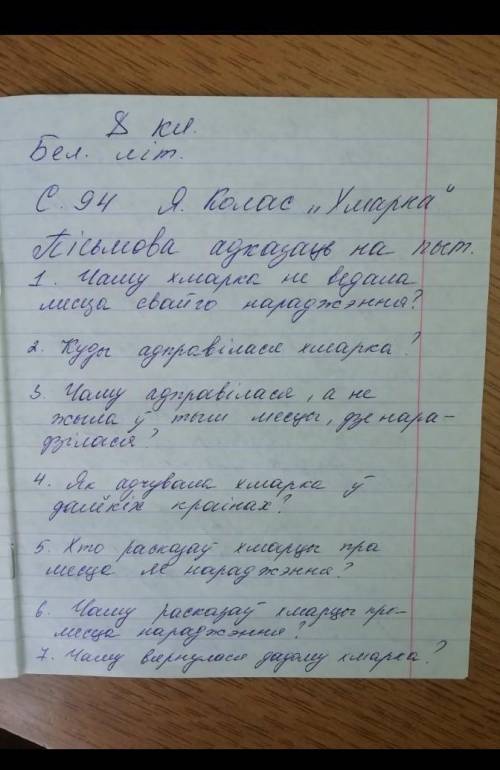 8 кл.
Бел. літ.
С. 94 Я. Колас „Хмарка“
Пісьмова адказаць на пыт.
1. Чаму хмарка не ведала
месца свайго нараджэння?
2. Куды адправілася хмарка?
3. Чаму адправілася, а не
жыла ў тым месцы, дзе нара-
дзілася?
4. Як адчувала хмарка ў
далёкіх краінах?
5. Хто расказаў хмарцы пра
месца яе нараджэння?
6. Чаму расказаў хмарцы пра
месца нараджэння?
7. Чаму вярнулася дадому хмарка?